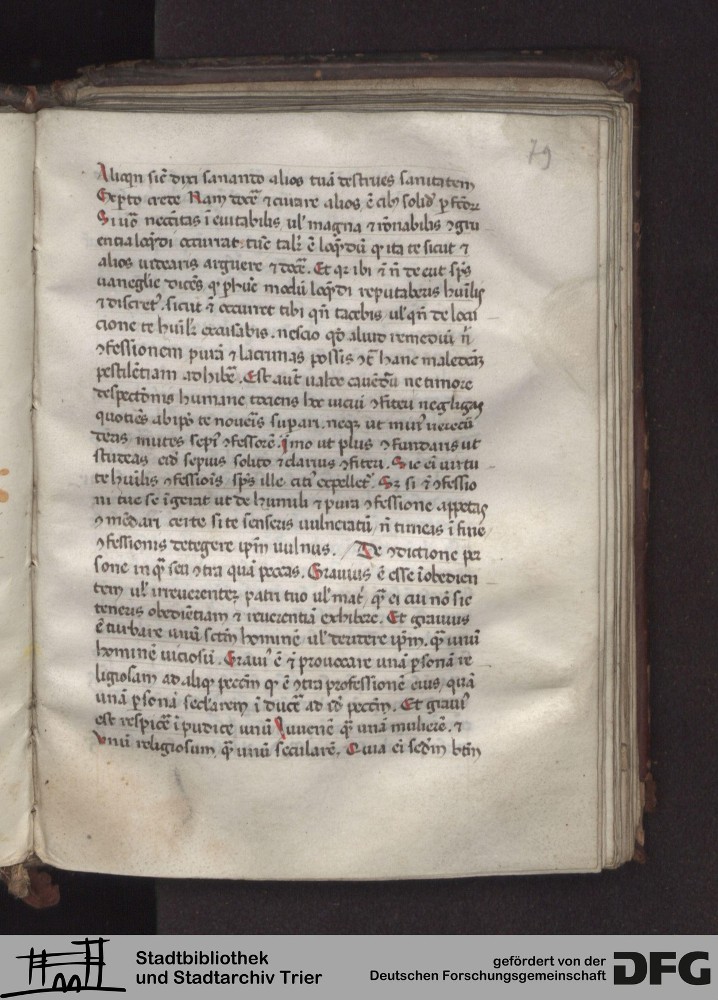 79
Aliqñ sic̃ dixi sanando alios tuã destrues sanitatem
Exp̱to crede Nam docẽ ⁊ curare alios ẽ cib᷒ solid᷒
Si uõ necc̃itas ĩeuitabilis ul᷑ magna ⁊ rõnabilis
loq̃ndi occurrat tũc ẽ loq̃ndũ q ita te sicut ⁊
alios uidearis arguere ⁊ docẽ. Et qz ibi ⁊ ñ de
uaneglie dicẽs q p̱ hũc modũ loq̃ndi reputaberis hũilis
⁊ discret᷒. sicut ⁊ occurret tibi qñ tacebis ul᷑ qñ de locu
cione te hũilr̃ excusabis. nescio qd̃ aliud remediũ ñ
ꝯfessionem purã ⁊ lacrimas possis ꝯᵗ hanc maledcãz
pestilẽtiam adhibẽ. Est aut̃ valde cauẽdũ ne timore
despectõnis humane tociens hoc uiciũ ꝯfiteri negligas
quociẽs ab ip̃o te nouẽis sup̱ari. neqz ut
deas mutes sepi᷒ ꝯfessorẽ. ĩmo ut plus ꝯfundaris ut
studeas eid̃ sepius solito ⁊ clarius ꝯfiteri. Sic ei uirtu
te hũilis ꝯfessiõis sp̃s ille citi᷒ expellet᷑. Sz si ĩ ꝯfessio
ni tue se ĩgerat ut de humili ⁊ pura ꝯfessione appetas
ꝯmẽdari certe si te senseris uulneratũ ñ timeas ĩ fine
ꝯfessionis detegere ip̃m uulnus. De ꝯdictione per
sone in qã seu ꝯtra quã peccas. Grauius ẽ esse ĩobedien
tem ul᷑ irreuerentez patri tuo ul᷑ mat᷑ qã ei cui nõ sic
teneris obediẽtiam ⁊ reuerentiã exhibere. Et grauius
ẽ turbare unũ scm̃ hominẽ ul᷑ ip̃m. qã unũ
hominẽ uiciosũ. Graui᷒ ẽ ⁊ prouocare unã p̱sonã re
ligiosam ad aliq̃ pecc̃m q ẽ ꝯtra professionẽ eius, quã
unã p̱sonã sec̃larem ĩducẽ ad id̃ pecc̃m. Et graui᷒
est respicẽ ĩpudice unũ Iuuenẽ qã unã mulierẽ. ⁊
Vnũ religiosum qã unũ secularẽ. Quia ei scdm̃ btm̃
Stadtbibliothek
und Stadtarchiv Trier
gefördert von der
Deutschen Forschungsgemeinschaft
DFG